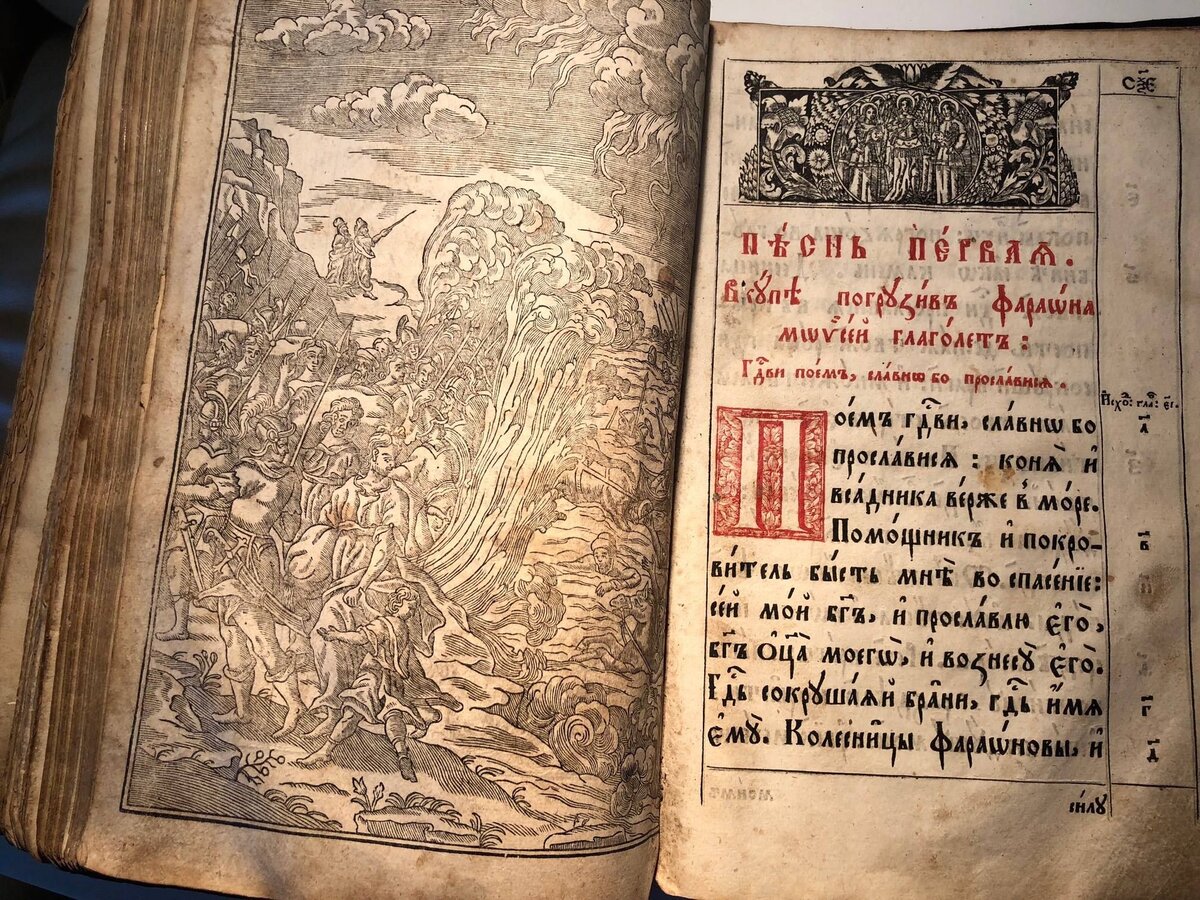 с҃ѯє
Пѣ́снь пе́рвая.
Вкꙋ́пѣ погрꙋзи́въ фараѡ́на
мѡѷсе́й глаго́летъ:
Гдⷭ҇ви пои́мъ, сла́внѡ бо просла́висѧ.
Исхо́: гла́: є҃і.
Пои́мъ гдⷭ҇ви, сла́внѡ бо
просла́висѧ: конѧ̀ и҆
вса́дника ве́рже в̾ мо́ре.
Помо́щникъ и҆ покро-
ви́тель бы́сть мнѣ̀ во спⷭ҇се́нїе:
се́й мо́й бг҃ъ, и҆ просла́влю є҆го̀,
бг҃ъ ѻ҆ц҃а̀ моегѡ̀, и҆ вознесꙋ̀ є҆го̀.
Гдⷭ҇ь сокрꙋша́ѧй бра̑ни, гдⷭ҇ь и҆́мѧ
є҆мꙋ̀. Колесни̑цы фараѡ́новы, и҆
а҃
в҃
г҃
д҃
си́лꙋ